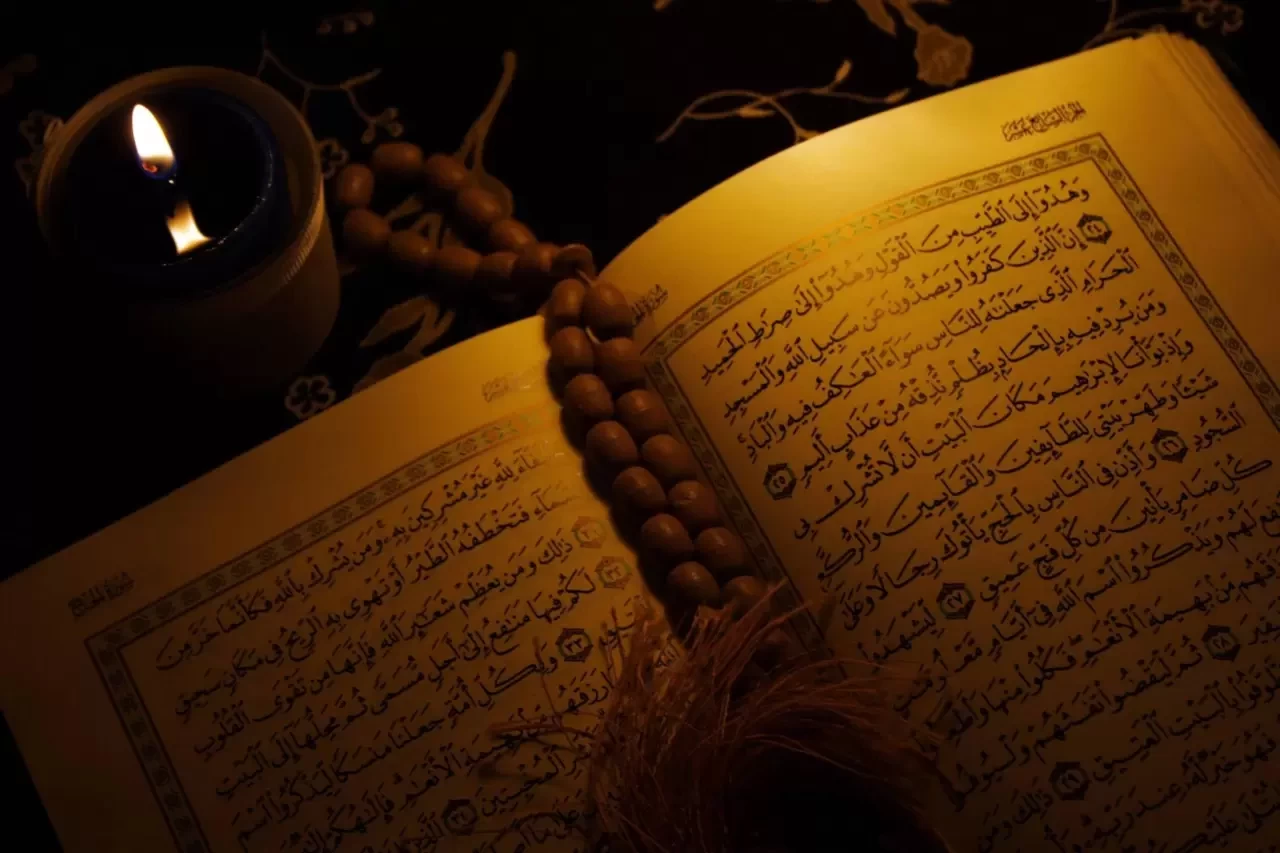 الجزء السابع عشر
وَهُدُوٓا۟ إِلَى ٱلطَّيِّبِ مِنَ ٱلْقَوْلِ وَهُدُوٓا۟ إِلَىٰ صِرَٰطِ ٱلْحَمِيدِ
٢٤ إِنَّ ٱلَّذِينَ كَفَرُوا۟ وَيَصُدُّونَ عَن سَبِيلِ ٱللَّهِ وَٱلْمَسْجِدِ
ٱلْحَرَامِ ٱلَّذِى جَعَلْنَٰهُ لِلنَّاسِ سَوَآءً ٱلْعَٰكِفُ فِيهِ وَٱلْبَادِ
وَمَن يُرِدْ فِيهِ بِإِلْحَادٍۭ بِظُلْمٍ نُّذِقْهُ مِنْ عَذَابٍ أَلِيمٍ ٢٥
وَإِذْ بَوَّأْنَا لِإِبْرَٰهِيمَ مَكَانَ ٱلْبَيْتِ أَن لَّا تُشْرِكْ بِى
شَيْـًٔا وَطَهِّرْ بَيْتِىَ لِلطَّآئِفِينَ وَٱلْقَآئِمِينَ وَٱلرُّكَّعِ
ٱلسُّجُودِ ٢٦ وَأَذِّن فِى ٱلنَّاسِ بِٱلْحَجِّ يَأْتُوكَ رِجَالًا وَعَلَىٰ
كُلِّ ضَامِرٍ يَأْتِينَ مِن كُلِّ فَجٍّ عَمِيقٍ ٢٧ لِّيَشْهَدُوا۟
لَهُمْ وَيَذْكُرُوا۟ ٱسْمَ ٱللَّهِ فِىٓ أَيَّامٍ مَّعْلُومَٰتٍ
مِّنۢ بَهِيمَةِ ٱلْأَنْعَٰمِ فَكُلُوا۟ مِنْهَا
٢٨ ثُمَّ لْيَقْضُوا۟ تَفَثَهُمْ وَلْيُوفُوا۟
بِٱلْبَيْتِ ٱلْعَتِيقِ ٢٩ ذَٰلِكَ وَمَن
فَهُوَ خَيْرٌ لَّهُۥ عِندَ رَبِّهِۦ
عَلَيْكُمْ
سورة الحج
لِلَّهِ غَيْرَ مُشْرِكِينَ بِهِۦ وَمَن يُشْرِكْ بِٱللَّهِ فَكَأَنَّمَا خَرَّ مِنَ
فَتَخْطَفُهُ ٱلطَّيْرُ أَوْ تَهْوِى بِهِ ٱلرِّيحُ فِى مَكَانٍ سَحِيقٍ
٣١ ذَٰلِكَ وَمَن يُعَظِّمْ شَعَٰٓئِرَ ٱللَّهِ فَإِنَّهَا مِن تَقْوَى ٱلْقُلُوبِ
٣٢ لَكُمْ فِيهَا مَنَٰفِعُ إِلَىٰٓ أَجَلٍ مُّسَمًّى ثُمَّ مَحِلُّهَآ إِلَى ٱلْبَيْتِ
٣٣ وَلِكُلِّ أُمَّةٍ جَعَلْنَا مَنسَكًا لِّيَذْكُرُوا۟ ٱسْمَ
ٱلْأَنْعَٰمِ فَإِلَٰهُكُمْ
ٱلْمُخْبِتِينَ ٣٤ ٱلَّذِينَ